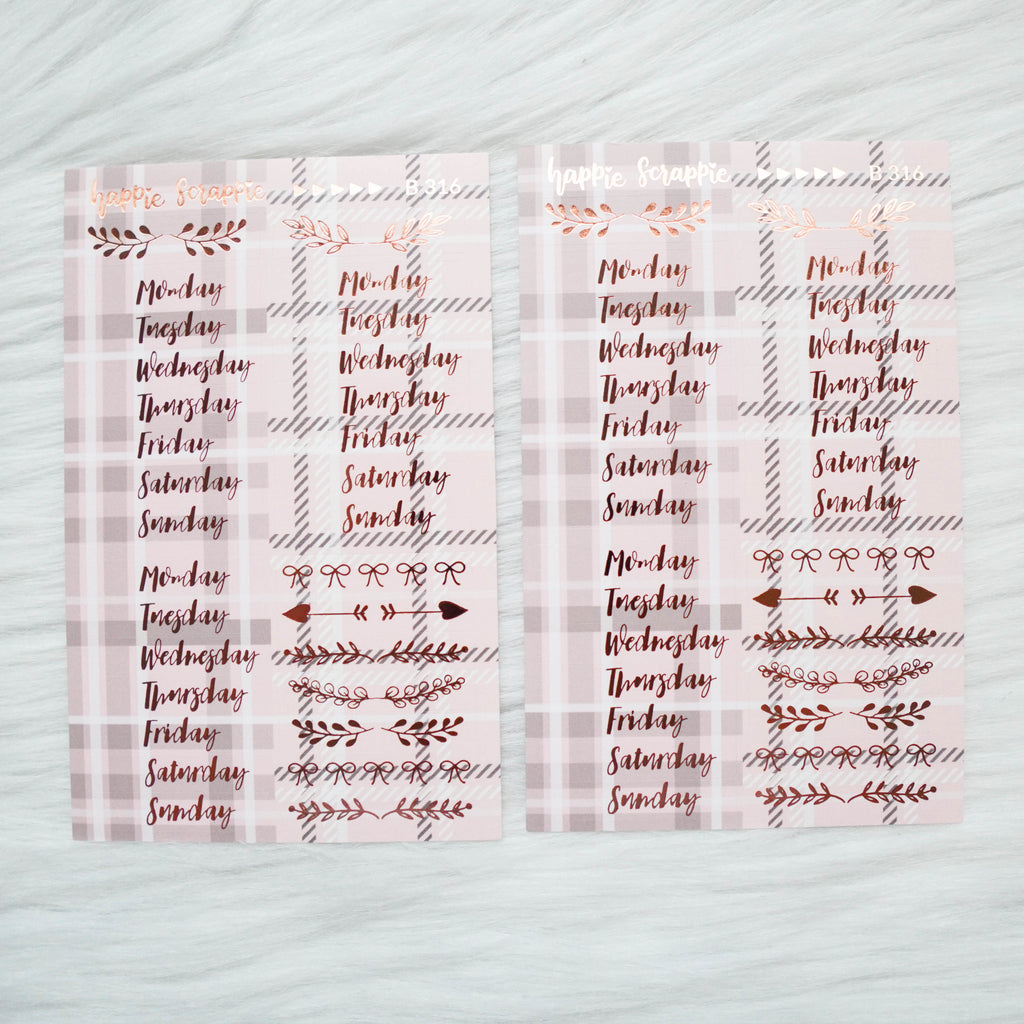 happie Scrappie B 316
Monday
Tuesday
Wednesday
Thursday
Friday
Saturday
Sunday
Monday
Tuesday
Wednesday
Thursday
Friday
Saturday
Sunday
Monday
Tuesday
Wednesday
Thursday
Friday
Saturday
Sunday
happie Scrappie B 316
Monday
Tuesday
Wednesday
Thursday
Friday
Saturday
Sunday
Monday
Tuesday
Wednesday
Thursday
Friday
Saturday
Sunday
Monday
Tuesday
Wednesday
Thursday
Friday
Saturday
Sunday